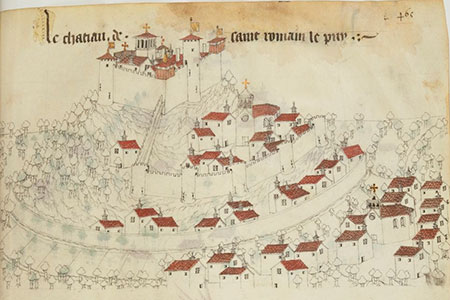 le chatiau . de . saint romain le puy